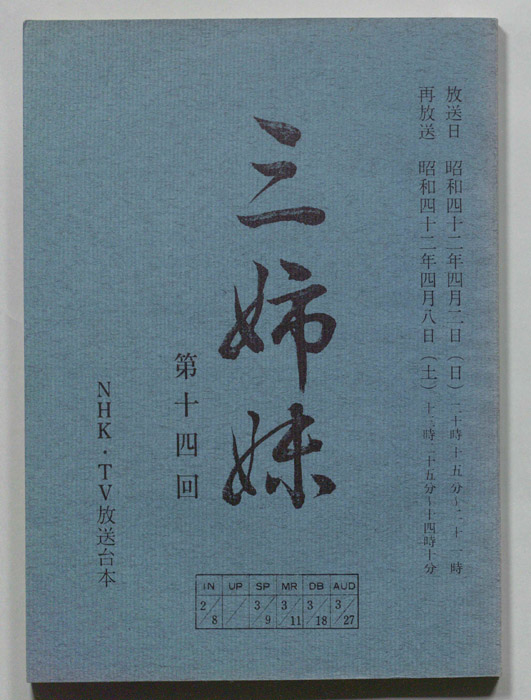 放送日 昭和四十二年四月二日（日）二十時十五分～二十一時
再放送 昭和四十二年四月八日（土）十三時二十五分～十四時十分
三姉妹
第十四回
NHK・TV放送台本
IN UP SP MR DB AUD
2/8 / 3/9 3/11 3/18 3/27